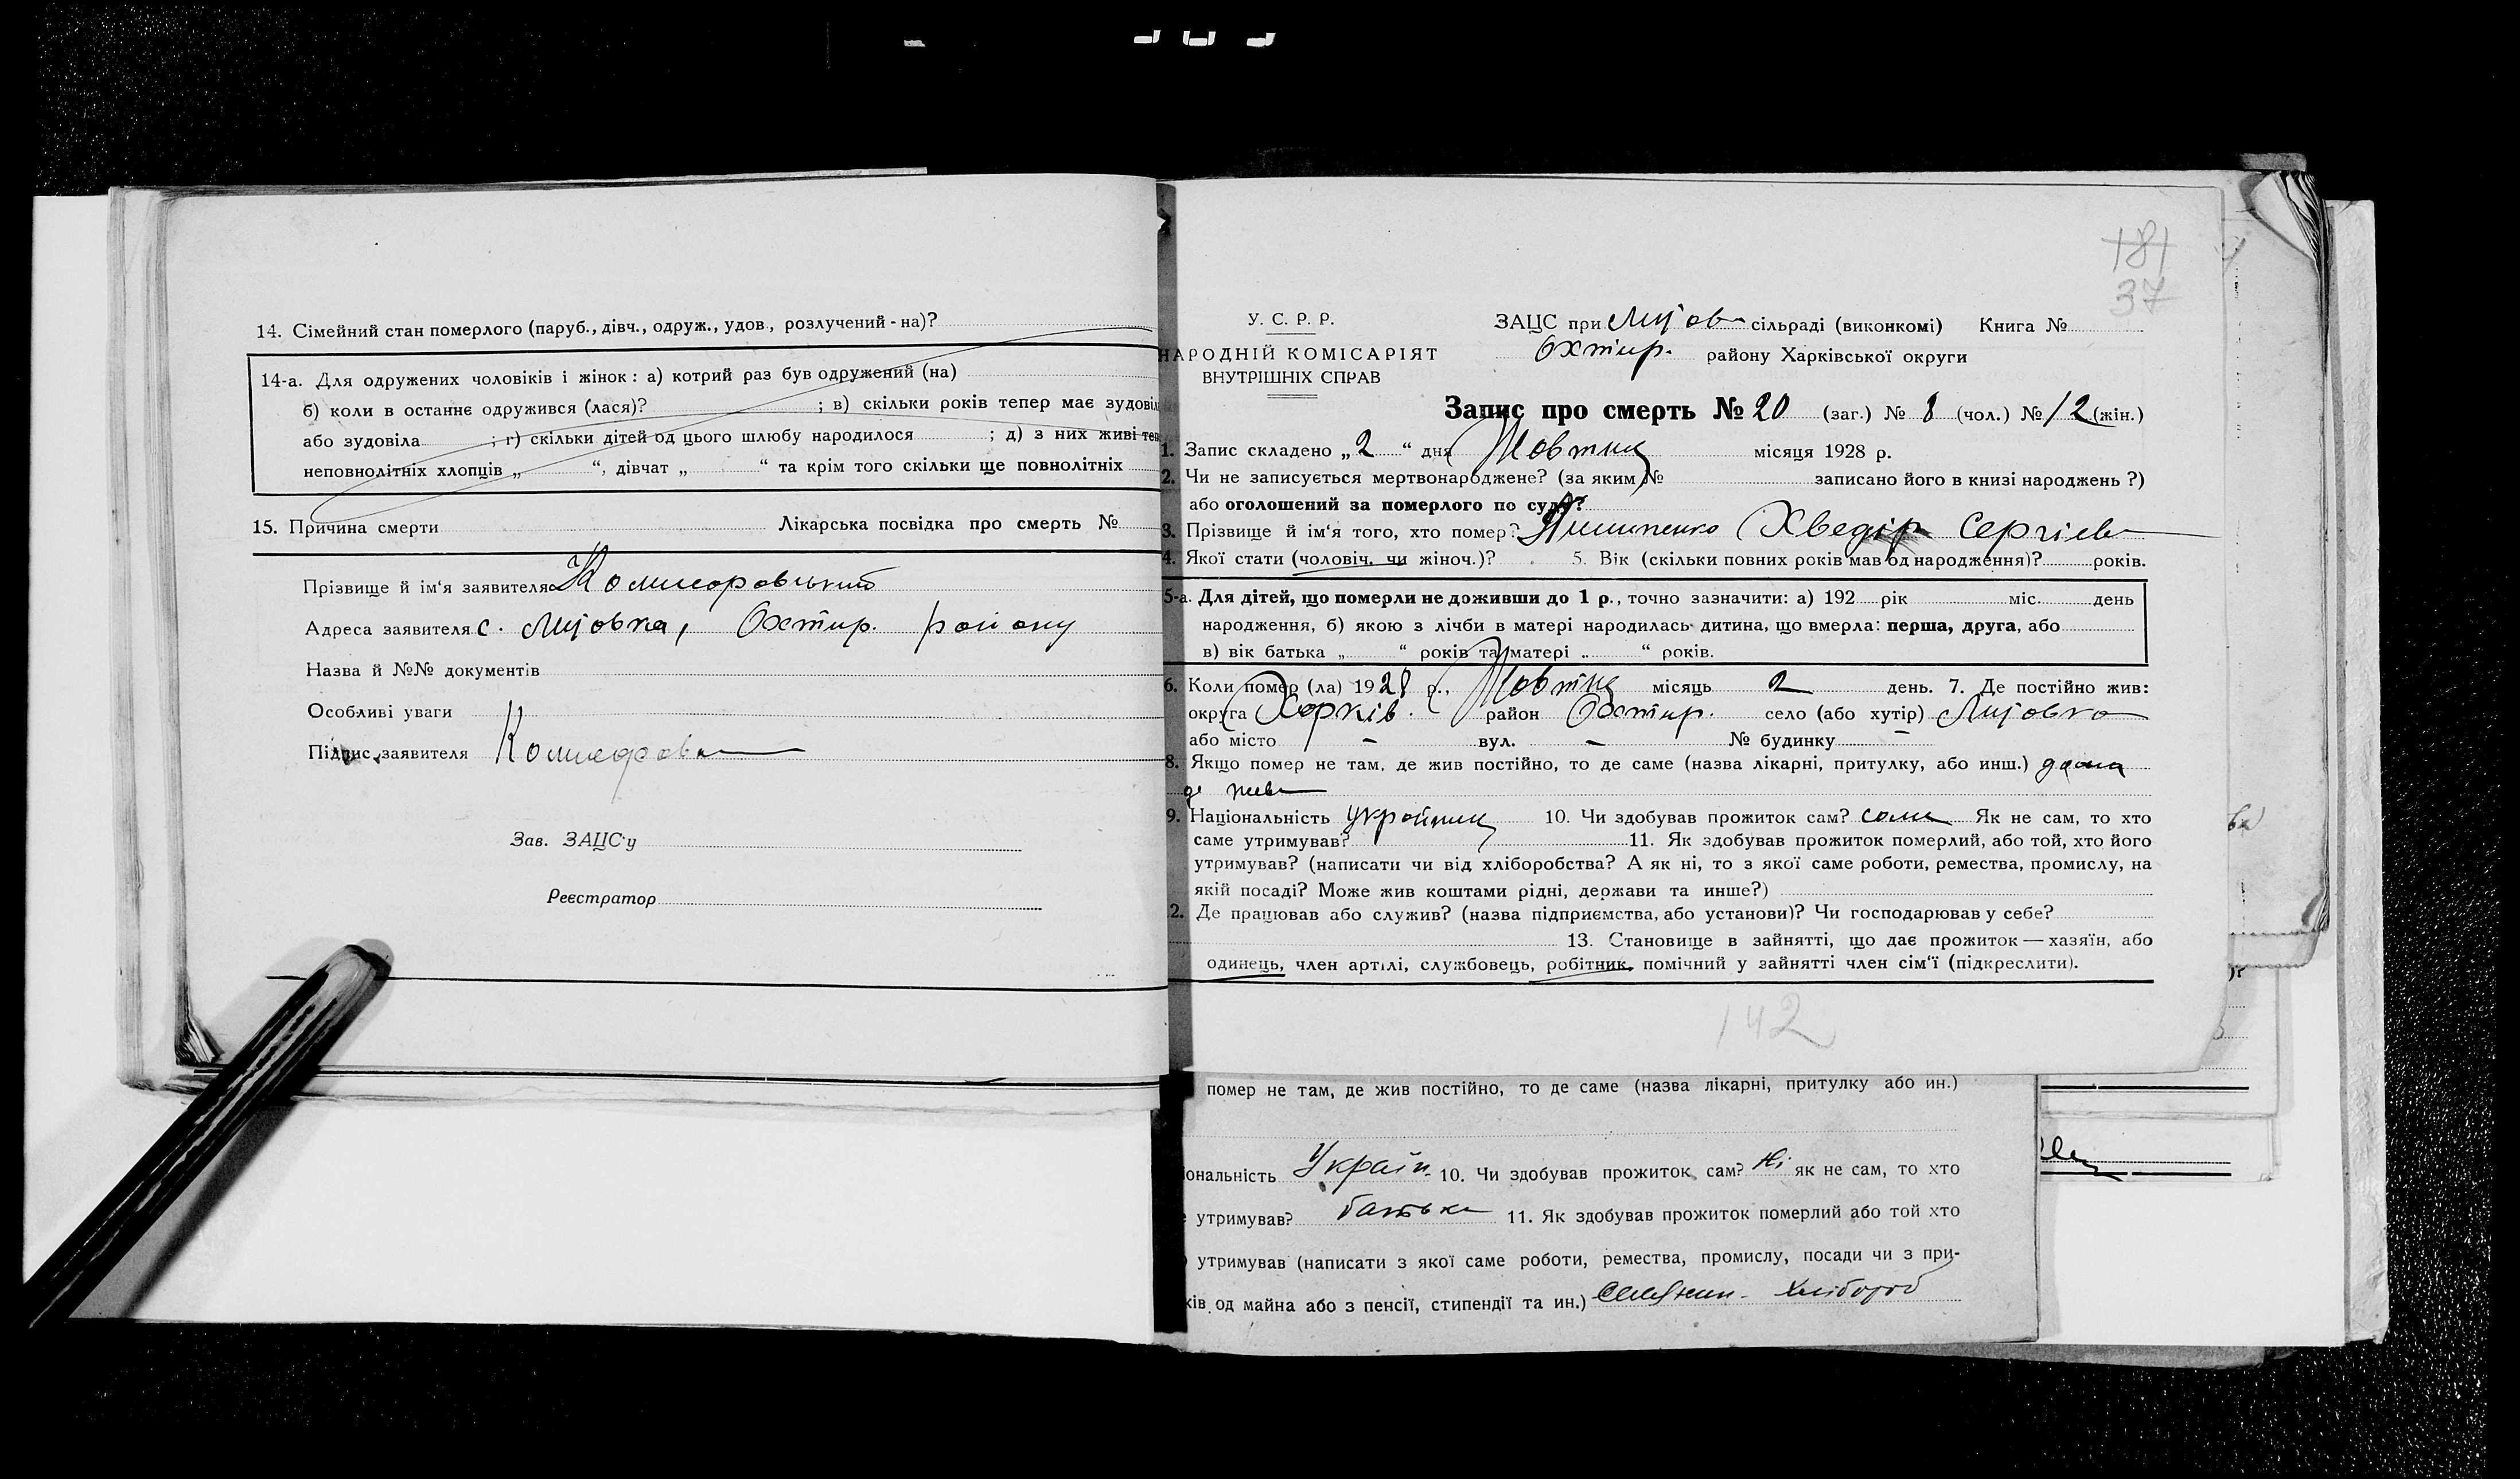 14. Сімейний стан померлого (паруб., дівч., одруж., удов., розлучений - на)?
14-а. Для одружених чоловіків і жінок: а) котрий раз був одружений (на)
б) коли в останнє одружився (лася)? ; в) скільки років тепер має зудові
або зудовіла ; г) скільки дітей од цього шлюбу народилося ; д) з них живі теп
неповнолітніх хлопців „ “, дівчат „ “ та крім того скільки ще повнолітніх
15. Причина смерти Лікарська посвідка про смерть №
Прізвище й ім‘я заявителя
Адреса заявителя с. Лиҗовка, Охтир. району
Назва й №№ документів
Особливі уваги
Підпис заявителя
Зав. ЗАЦС‘у
Реєстратор
181
37
У. С. Р. Р.
НАРОДНІЙ КОМІСАРІЯТ
ВНУТРІШНІХ СПРАВ
ЗАЦС при сільраді (виконкомі) Книга №
Охтир. району Харківської округи
Запис про смерть № 20 (заг.) № 8 (чол.) № 12 (жін.)
1. Запис складено „ 2 “ дня Жовтня місяця 1928 р.
2. Чи не записується мертвонароджене? (за яким № записано його в книзі народжень ?)
або оголошений за померлого по суду?
3. Прізвище й ім‘я того, хто помер? Хведір Сергієв
4. Якої стати (чоловіч. чи жіноч.)? 5. Вік (скільки повних років мав од народження)? років.
5-а. Для дітей, що померли не доживши до 1 р., точно зазначити: а) 192 рік міс. день
народження, б) якою з лічби в матері народилась дитина, що вмерла: перша, друга, або
в) вік батька „ “ років та матері „ “ років.
6. Коли помер (ла) 1928 р., Жовтня місяць 2 день. 7. Де постійно жив:
округа Харків. район Охтир. село (або хутір)
або місто – вул. – № будинку –
8. Якщо помер не там, де жив постійно, то де саме (назва лікарні, притулку, або инш.) дома
де жив
9. Національність українец 10. Чи здобував прожиток сам? сам Як не сам, то хто
саме утримував? 11. Як здобував прожиток померлий, або той, хто його
утримував? (написати чи від хліборобства? А як ні, то з якої саме роботи, ремества, промислу, на
якій посаді? Може жив коштами рідні, держави та инше?)
2. Де працював або служив? (назва підприємства, або установи)? Чи господарював у себе?
13. Становище в зайнятті, що дає прожиток — хазяїн, або
одинець, член артілі, службовець, робітник, помічний у зайнятті член сім‘ї (підкреслити).
142
помер не там, де жив постійно, то де саме (назва лікарні, притулку або ин.)
іональність Україн. 10. Чи здобував прожиток сам? Ні як не сам, то хто
утримував? батько 11. Як здобував прожиток померлий або той хто
утримував (написати з якої саме роботи, ремества, промислу, посади чи з при-
ків од майна або з пенсії, стипендії та ин.) Селянин. Хлібороб